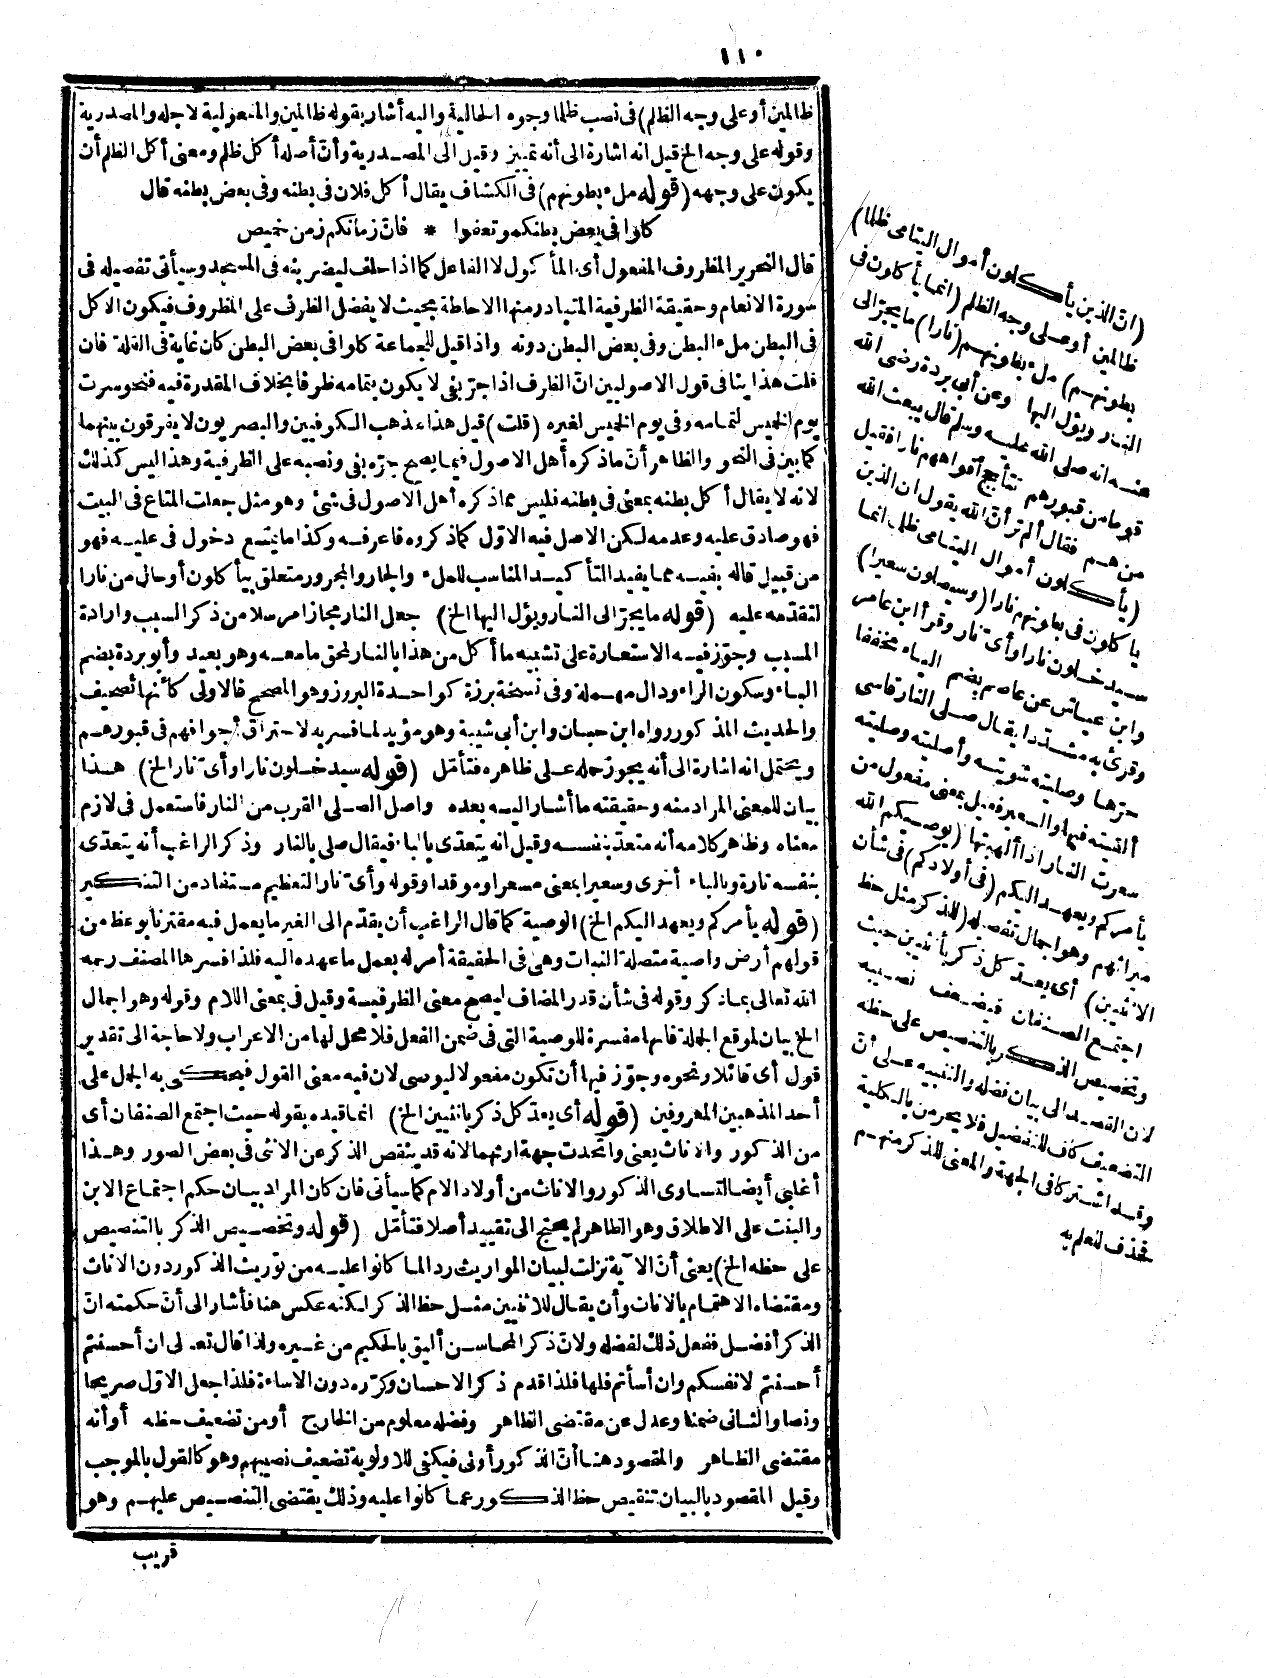 ١١٠
ظالمين أو على وجه الظلم) فى نصب ظلما وجوه الحالية واليه أشار بقوله ظالمين والمفعولية لاجله والمصدرية
وقوله على وجه الخ قيل انه اشارة الى أنه تمييز وقيل الى المصدرية وأن أصله أكل ظلم ومعنى أكل الظلم أن
يكون على وجهه (قوله ملء بطونهم) فى الكشاف يقال أكل فلان فى بطنه وفى بعض بطنه قال
كلوا فى بعض بطنكمو تعفوا * فان زمانكم زمن خميص
قال النحرير المظروف المفعول أى المأكول لا الفاعل كما اذا حلف ليضربنه فى المسجد وسيأتى تفصيله فى
سورة الانعام وحقيقة الظرفية المتبادر منها الاحاطة بحيث لا يفضل الظرف على المظروف فيكون الاكل
فى البطن ملء البطن وفى بعض البطن دونه واذا قيل للجماعة كلوا فى بعض البطن كان غاية فى القلة فان
قلت هذا ينافى قول الاصوليين ان الظرف اذا جرّ بفى لا يكون بتمامه ظرفا بخلاف المقدرة فيه فنحو سرت
يوم الخميس لتمامه وفى يوم الخميس لغيره (قلت) قيل هذا مذهب الكوفيين والبصريون لا يفرقون بينهما
كما بين فى النحو والظاهر أن ما ذكره أهل الاصول فيما يصح جرّه بفى ونصبه على الظرفية وهذا ليس كذلك
لانه لا يقال أكل بطنه بمعنى فى بطنه فليس مما ذكره أهل الاصول فى شئ وهو مثل جعلت المتاع فى البيت
فهو صادق عليه وعدمه لكن الاصل فيه الاوّل كما ذكروه فاعرفه وكذا ما يتسع دخول فى عليه فهو
من قبيل قاله بفيه مما يفيد التأكيد المناسب للملء والجار والمجرور متعلق بيأكلون أو حال من نارا
لتقدّمه عليه (قوله ما يجرّ الى النار ويؤل اليها الخ) جعل النار مجازا مرسلا من ذكر السبب وارادة
المسبب وجوّز فيه الاستعارة على تشبيه ما أكل من هذا بالنار لمحق ما معه وهو بعيد وأبو بردة بضم
الباء وسكون الراء ودال مهملة وفى نسخة برزة كواحدة البروز وهو المصحح فالاولى كأنها تصحيف
والحديث المذكور رواه ابن حبان وابن أبى شيبة وهو مؤيد لما فسر به لاحتراق أجوافهم فى قبورهم
ويحتمل انه اشارة الى أنه يجوز حمله على ظاهره فتأمّل (قوله سيدخلون نارا وأىّ نار الخ) هذا
بيان للمعنى المراد منه وحقيقته ما أشار اليه بعده وأصل الصلى القرب من النار فاستعمل فى لازم
معناه وظاهر كلامه أنه متعدّ بنفسه وقيل انه يتعدّى بالباء فيقال صلى بالنار وذكر الراغب أنه يتعدّى
بنفسه تارة وبالباء أخرى وسعيرا بمعنى مسعرا وموقدا وقوله وأىّ نار التعظيم مستفاد من التنكير
(قوله يأمركم ويعهد اليكم الخ) الوصية كما قال الراغب أن يقدّم الى الغير ما يعمل فيه مقترنا بوعظ من
قولهم أرض واصية متصلة النبات وهى فى الحقيقة أمر له بعمل ما عهده اليه فلذا فسرها المصنف رحمه
الله تعالى بما ذكر وقوله فى شأن قدر المضاف ليصح معنى الظرفية وقيل فى بمعنى اللام وقوله وهو اجمال
الخ بيان لموقع الجملة فانها مفسرة للوصية التى فى ضمن الفعل فلا محل لها من الاعراب ولا حاجة الى تقدير
قول أى قائلا ونحوه وجوّز فيها أن تكون مفعولا ليوصى لان فيه معنى القول فيحكى به الجمل على
أحد المذهبين المعروفين (قوله أى يعدّ كل ذكر بانثيين الخ) انما قيده بقوله حيث اجتمع الصنفان أى
من الذكور والاناث يعنى واتحدت جهة ارثهما لانه قد ينقص الذكر عن الانثى فى بعض الصور وهذا
أغلبى أيضا لتساوى الذكور والاناث من أولاد الام كما سيأتى فان كان المراد بيان حكم اجتماع الابن
والبنت على الاطلاق وهو الظاهر لم يحتج الى تقييد أصلا فتأمّل (قوله وتخصيص الذكر بالتنصيص
على حظه الخ) يعنى أن الآية نزلت لبيان المواريث ردا لما كانوا عليه من توريث الذكور دون الاناث
ومقتضاه الاهتمام بالاناث وأن يقال للانثيين مثل حظ الذكر لكنه عكس هنا فأشار الى أن حكمته ان
الذكر أفضل ففعل ذلك لفضله ولان ذكر المحاسن أليق بالحكيم من غيره ولذا قال تعالى ان أحسنتم
أحسنتم لانفسكم وان أسأتم فلها فلذا قدم ذكر الاحسان وكرّره دون الاساءة فلذا جعل الاوّل صريحا
ونصا والثانى ضمنا وعدل عن مقتضى الظاهر وفضله معلوم من الخارج أو من تضعيف حظه أو أنه
مقتضى الظاهر والمقصود هنا أن الذكور أولى فيكفى للاولوية تضعيف نصيبهم وهو كالقول بالموجب
وقيل المقصود بالبيان تنقيص حظ الذكور عما كانوا عليه وذلك يقتضى التنصيص عليهم وهو
قريب
(ان الذين يأكلون أموال اليتامى ظلما)
ظالمين أو على وجه الظلم (انما يأكلون فى
بطونهم) ملء بطونهم (نارا) ما يجرّ الى
النار ويؤل اليها وعن أبى بردة رضى الله
عنه انه صلى الله عليه وسلم قال يبعث الله
قوما من قبورهم تتأجج أفواههم نارا فقيل
من هم فقال ألم تر أن الله يقول ان الذين
(يأكلون أموال اليتامى ظلما انما
يأكلون فى بطونهم نارا (وسيصلون سعيرا)
سيدخلون نارا وأىّ نار وقرأ ابن عامر
وابن عياش عن عاصم بضم الياء مخففا
وقرئ به مشدّدا يقال صلى النار قاسى
حرّها وصليته شويته وأصليته وصليته
ألقيته فيها والسعير فعيل بمعنى مفعول من
سعرت النار اذا ألهبتها (يوصيكم الله
يأمركم ويعهد اليكم (فى أولادكم) فى شأن
ميراثهم وهو اجمال تفصيله (للذكر مثل حظ
الانثيين) أى يعدّ كل ذكر بأنثيين حيث
اجتمع الصنفان فيضعف نصيبه
وتخصيص الذكر بالتنصيص على حظه
لان القصد الى بيان فضله والتنبيه على أن
التضعيف كاف للتفضيل فلا يحرمن بالكلية
وقد اشتركا فى الجهة والمعنى للذكر منهم
فحذف للعلم به